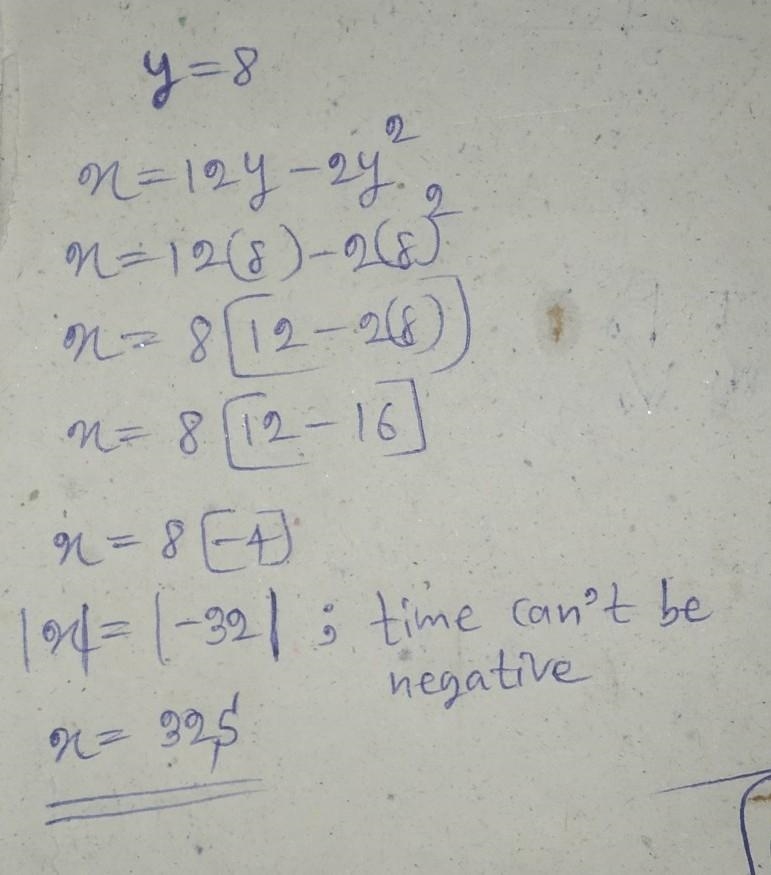 y=8
x=12y-2y²
x=12(8)-2(8)²
x=8[12-2(8)]
x=8[12-16]
x=8[-4]
|x|=|-32| ; time can't be
negative
x=32s